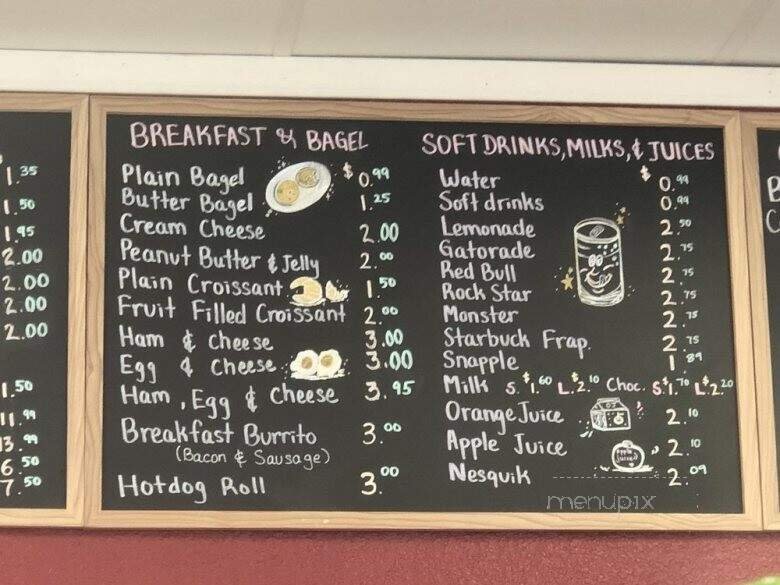 1.35
1.50
1.95
2.00
2.00
2.00
2.00
1.50
11.99
13.99
6.50
7.50
BREAKFAST & BAGEL
Plain Bagel $0.99
Butter Bagel 1.25
Cream Cheese 2.00
Peanut Butter & Jelly 2.00
Plain Croissant 1.50
Fruit Filled Croissant 2.00
Ham & cheese 3.00
Egg & Cheese 3.00
Ham, Egg & Cheese 3.95
Breakfast Burrito 3.00
(Bacon & Sausage)
Hotdog Roll 3.00
SOFT DRINKS, MILKS, & JUICES
Water $0.99
Soft drinks 0.99
Lemonade 2.50
Gatorade 2.75
Red Bull 2.75
Rock Star 2.75
Monster 2.75
Starbuck Frap. 2.75
Snapple 1.89
Milk S. $1.60 L. $2.10 Choc. S. $1.70 L $2.20
Orange Juice 2.10
Apple Juice 2.10
Nesquik 2.09
menupix